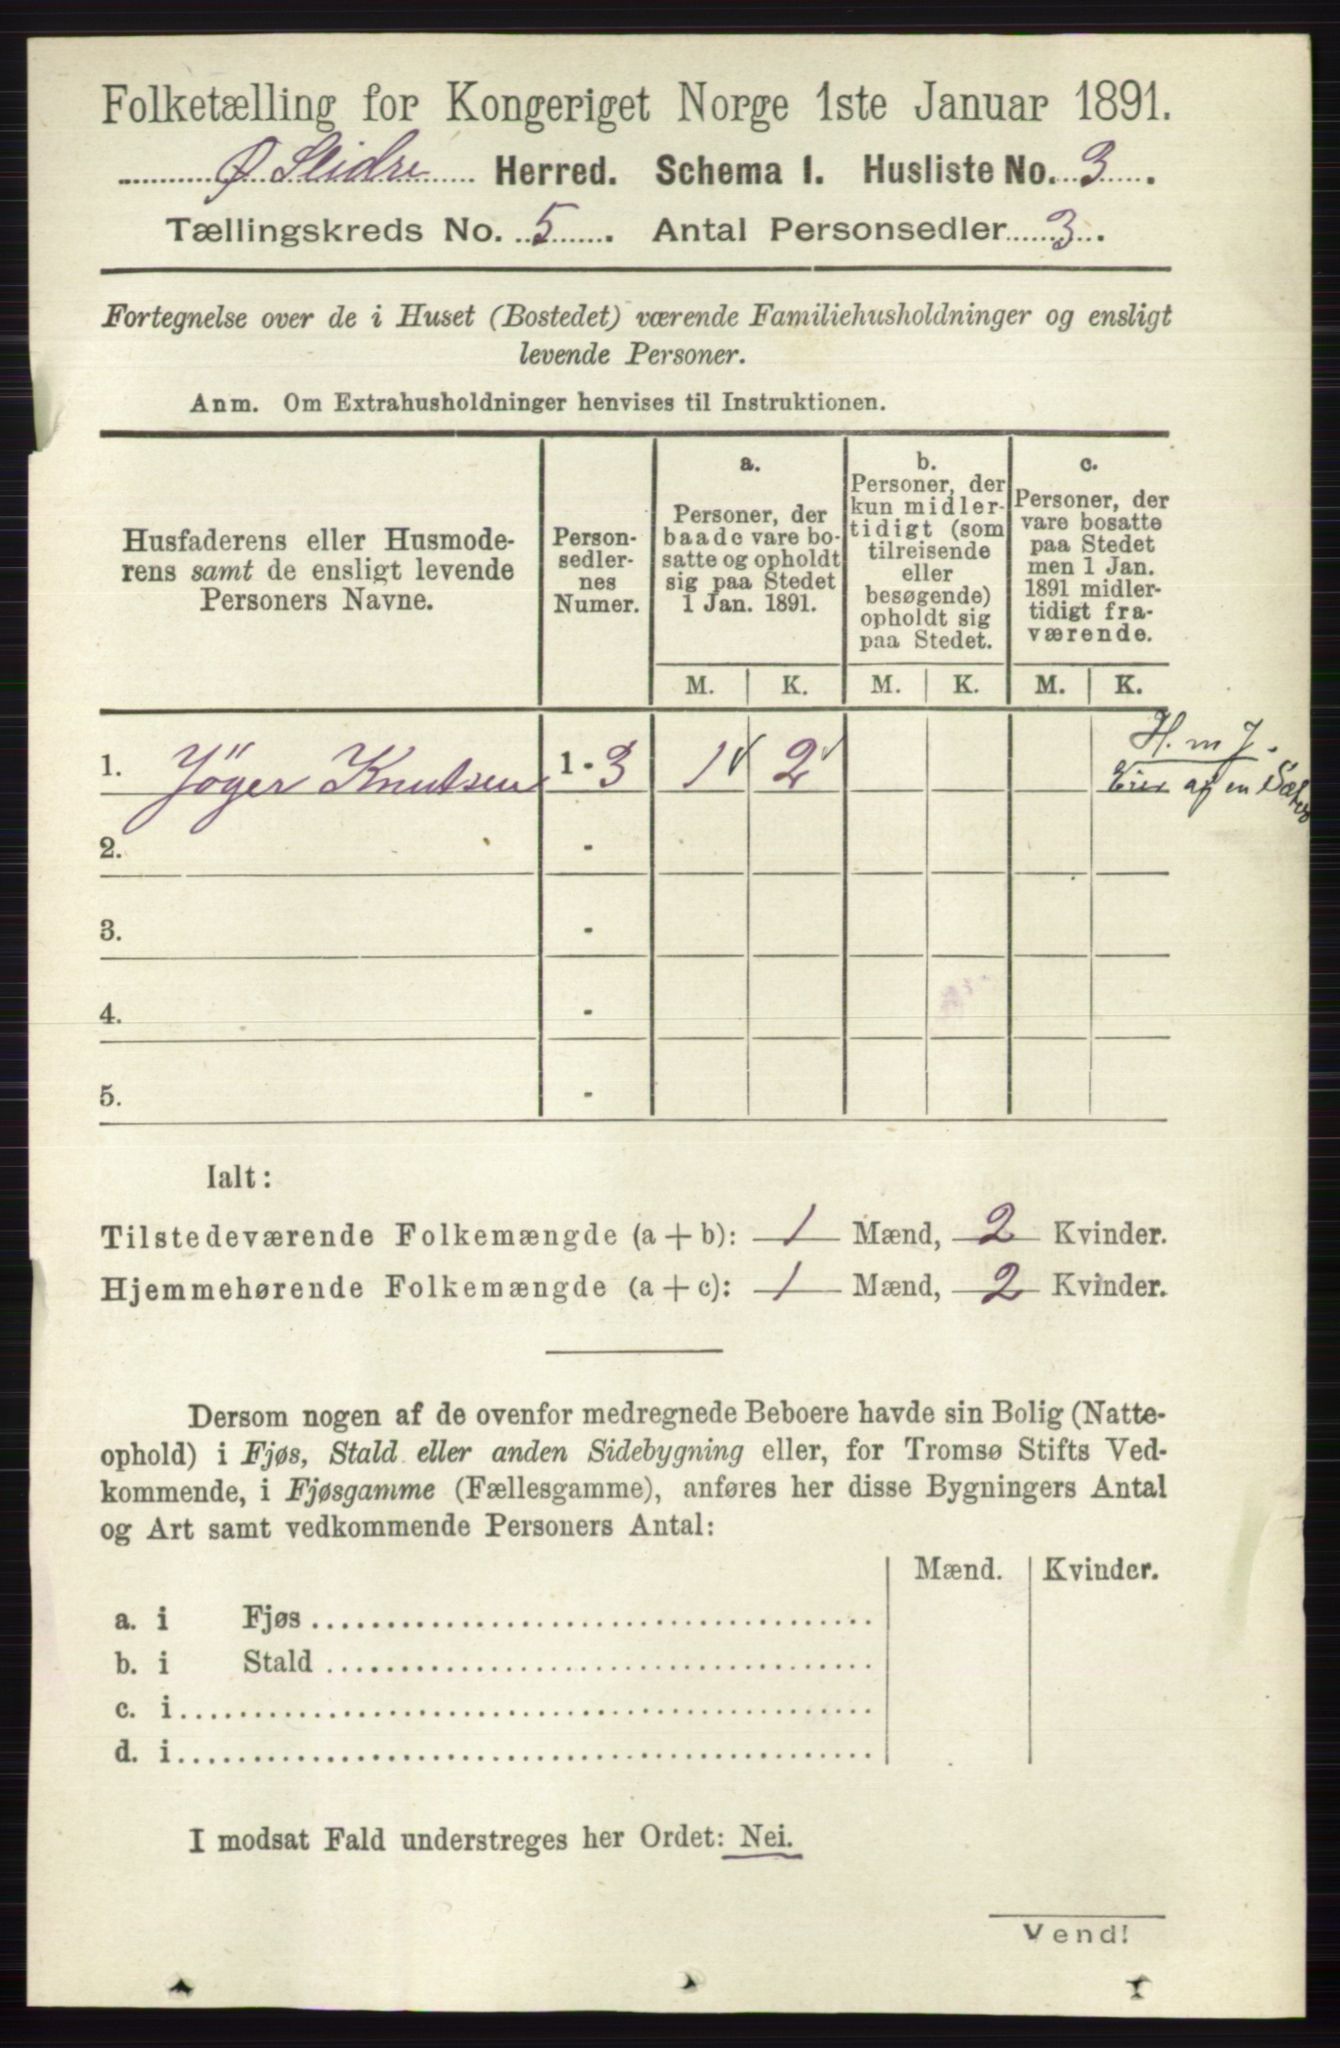 Folketælling for Kongeriget Norge 1ste Januar 1891.
Ø. Slidre Herred. Schema I. Husliste No. 3.
Tællingskreds No. 5. Antal Personsedler 3.
Fortegnelse over de i Huset (Bostedet) værende Familiehusholdninger og ensligt
levende Personer.
Anm. Om Extrahusholdninger henvises til Instruktionen.
Husfaderens eller Husmode-
rens samt de ensligt levende
Personers Navne.
Person-
sedler-
nes
Numer.
a.
Personer, der
baade vare bo-
satte og opholdt
sig paa Stedet
1 Jan. 1891.
b.
Personer, der
kun midler-
tidigt (som
tilreisende
eller
besøgende)
opholdt sig
paa Stedet.
c.
Personer, der
vare bosatte
paa Stedet
men 1 Jan.
1891 midler-
tidigt fra-
værende.
M. K. M. K. M. K.
H. m J.
1. Jöger Knutsen 1 - 3 1 2
Eier af en Sæter
2. -
3. -
4. -
5. -
Ialt:
Tilstedeværende Folkemængde (a + b): 1 Mænd, 2 Kvinder.
Hjemmehørende Folkemængde (a + c): 1 Mænd, 2 Kvinder.
Dersom nogen af de ovenfor medregnede Beboere havde sin Bolig (Natte-
ophold) i Fjøs, Stald eller anden Sidebygning eller, for Tromsø Stifts Ved-
kommende, i Fjøsgamme (Fællesgamme), anføres her disse Bygningers Antal
og Art samt vedkommende Personers Antal:
Mænd. Kvinder.
a. i Fjøs
b. i Stald
c. i
d. i
I modsat Fald understreges her Ordet: Nei.
Vend!